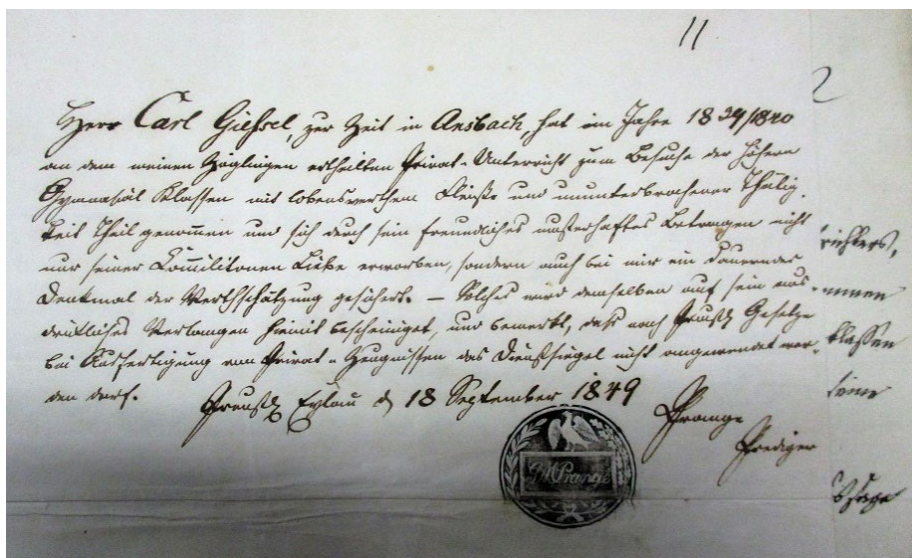 11
2
Herr Carl Giessel, zur Zeit in Ansbach, hat im Jahre 1839/1840
an dem meinen Zöglingen ertheilten Privat-Unterricht zum Besuche der höhern
Gymnasial Klassen mit lobenswerthem Fleiße und ununterbrochener Thätig-
keit Theil genommen und sich durch sein freundliches musterhaftes Betragen nicht
nur seiner Commilitonen Liebe erworben, sondern auch bei mir ein dauerndes
Denkmal der Werthschätzung gesichert. — Solches wird demselben auf sein aus-
drükliches Verlangen hiemit bescheiniget, und bemerkt, daß nach Preuß Gesetze
bei Ausfertigung von Privat-Zeugnissen das Dienstsiegel nicht angewendet wer-
den darf.
Preuß Eylau d 18 September 1849
Prange
Prediger
Prange
richters,
klassen
seine